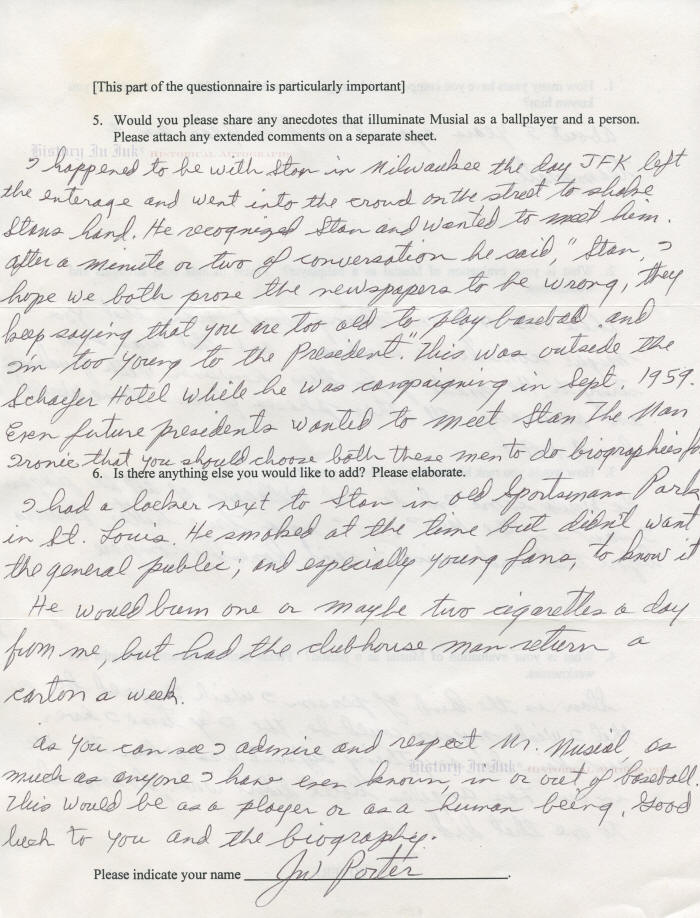 [This part of the questionnaire is particularly important]
5. Would you please share any anecdotes that illuminate Musial as a ballplayer and a person.
Please attach any extended comments on a separate sheet.
History In Ink HISTORICAL AUTOGRAPHS
I happened to be with Stan in Milwaukee the day JFK left
the enterage and went into the crowd on the street to shake
Stans hand. He recognized Stan and wanted to meet him.
After a minute or two of conversation he said, "Stan, I
hope we both prove the newspapers to be wrong, they
keep saying that you are too old to play baseball and
I'm too young to the President." This was outside the
Schaefer Hotel while he was campaigning in Sept. 1959.
Even future presidents wanted to meet Stan The Man
Ironic that you should choose both these men to do biographies fo
6. Is there anything else you would like to add? Please elaborate.
I had a locker next to Stan in old Sportsmans Park
in St. Louis. He smoked at the time but didn't want
the general public, and especially young fans, to know it
He would bum one or maybe two cigarettes a day
from me, but had the clubhouse man return a
carton a week.
As you can see I admire and respect Mr. Musial as
much as anyone I have ever known, in or out of baseball.
History In Ink
This would be as a player or as a human being. Good
luck to you and the biography.
Please indicate your name JW Porter.